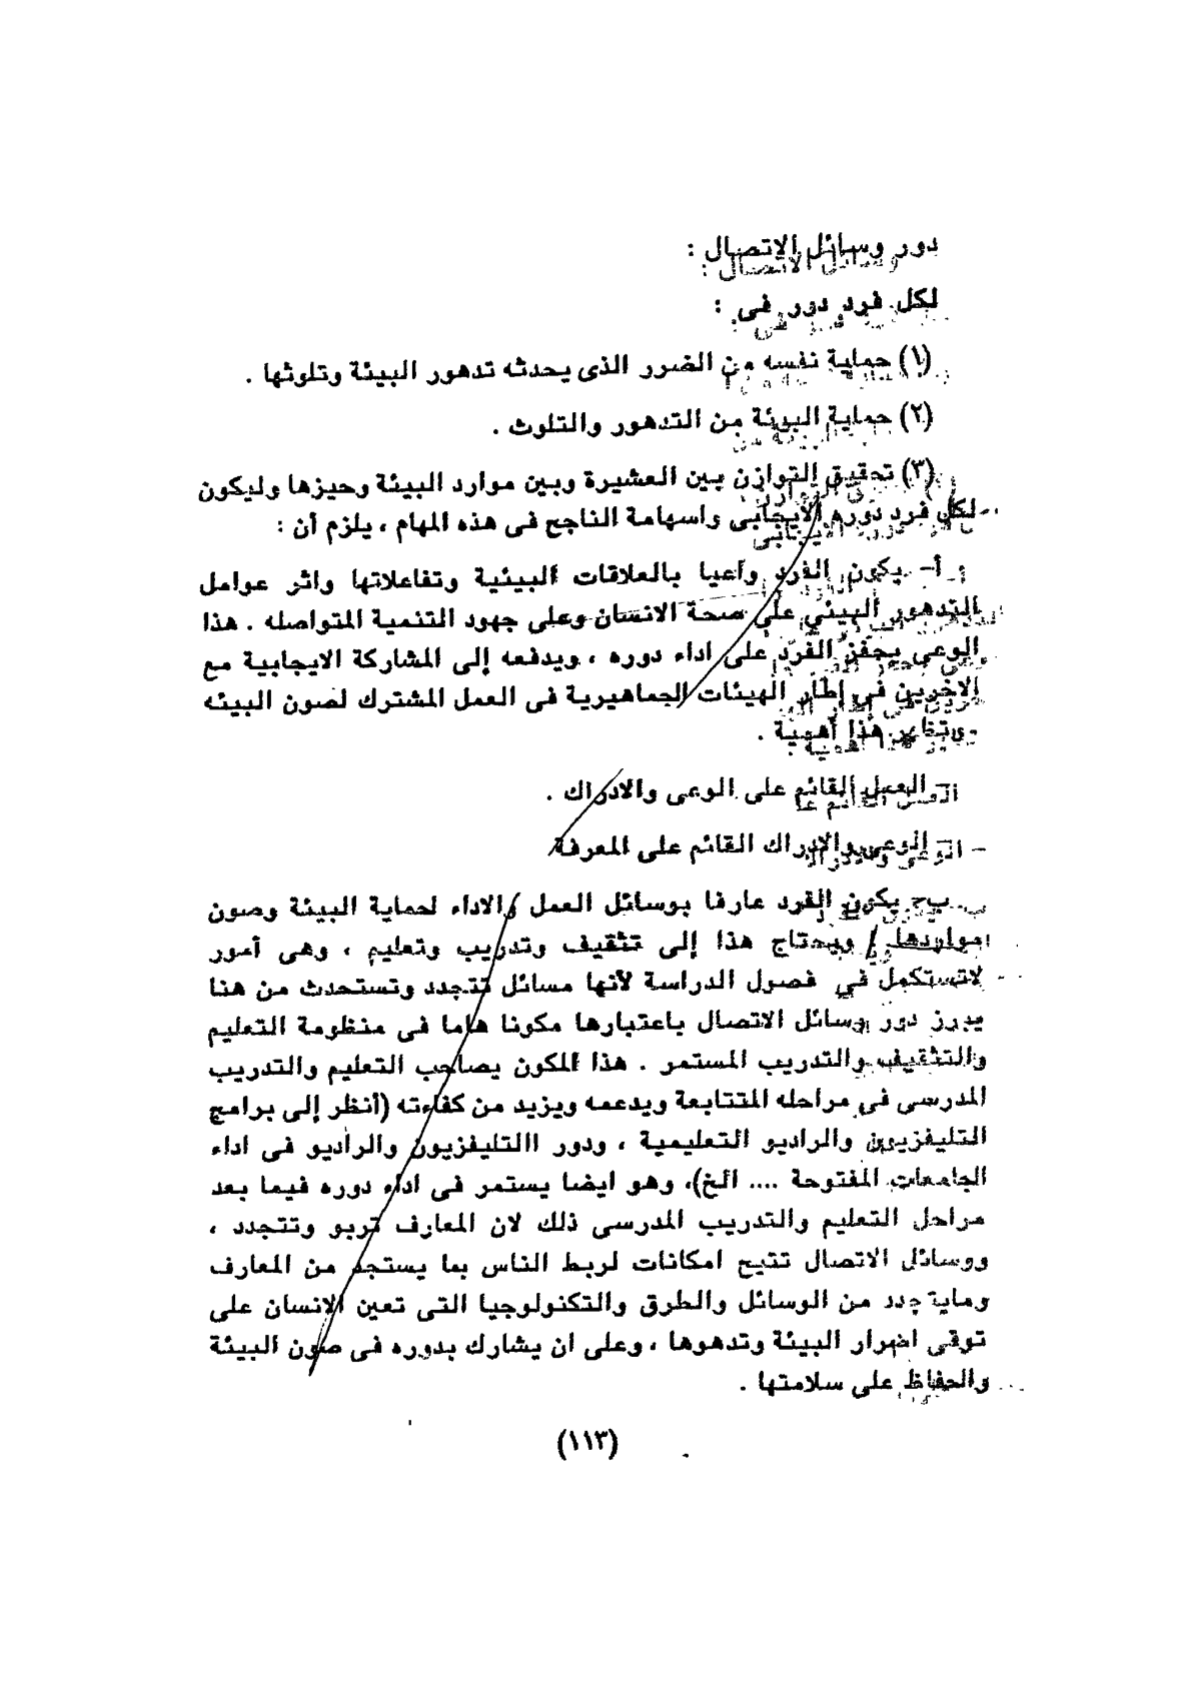 دور وسائل الاتصال :
لكل فرد دور فى :
(١) حماية نفسه من الضرر الذى يحدثه تدهور البيئة وتلوثها .
(٢) حماية البيئة من التدهور والتلوث .
(٣) تحقيق التوازن بين العشيرة وبين موارد البيئة وحيزها وليكون
لكل فرد دوره الايجابى واسهامة الناجح فى هذه المهام ، يلزم أن :
أ- يكون الفرد واعيا بالعلاقات البيئية وتفاعلاتها واثر عوامل
التدهور البيئي على صحة الانسان وعلى جهود التنمية المتواصله . هذا
الوعى يحفز الفرد على اداء دوره ، ويدفعه إلى المشاركة الايجابية مع
الاخرين في إطار الهيئات الجماهيرية فى العمل المشترك لصون البيئه
هذا أهمية .
- العمل القائم على الوعى والادراك .
- الوعى والادراك القائم على المعرفة
ب- يكون الفرد عارفا بوسائل العمل والاداء لحماية البيئة وصون
مواردها / ويحتاج هذا إلى تثقيف وتدريب وتعليم ، وهى أمور
لاتستكمل في فصول الدراسة لأنها مسائل تتجدد وتستحدث من هنا
يبرز دور وسائل الاتصال باعتبارها مكونا هاما فى منظومة التعليم
والتثقيف والتدريب المستمر . هذا المكون يصاحب التعليم والتدريب
المدرسى في مراحله المتتابعة ويدعمه ويزيد من كفاءته (أنظر إلى برامج
التليفزيون والراديو التعليمية ، ودور االتليفزيون والراديو فى اداء
الجامعات المفتوحة .... الخ)، وهو ايضا يستمر فى اداء دوره فيما بعد
مراحل التعليم والتدريب المدرسى ذلك لان المعارف تربو وتتجدد ،
ووسائل الاتصال تتيح امكانات لربط الناس بما يستجد من المعارف
ومايتجدد من الوسائل والطرق والتكنولوجيا التى تعين الانسان على
توقى اضرار البيئة وتدهوها ، وعلى ان يشارك بدوره فى صون البيئة
والحفاظ على سلامتها .
(١١٣)